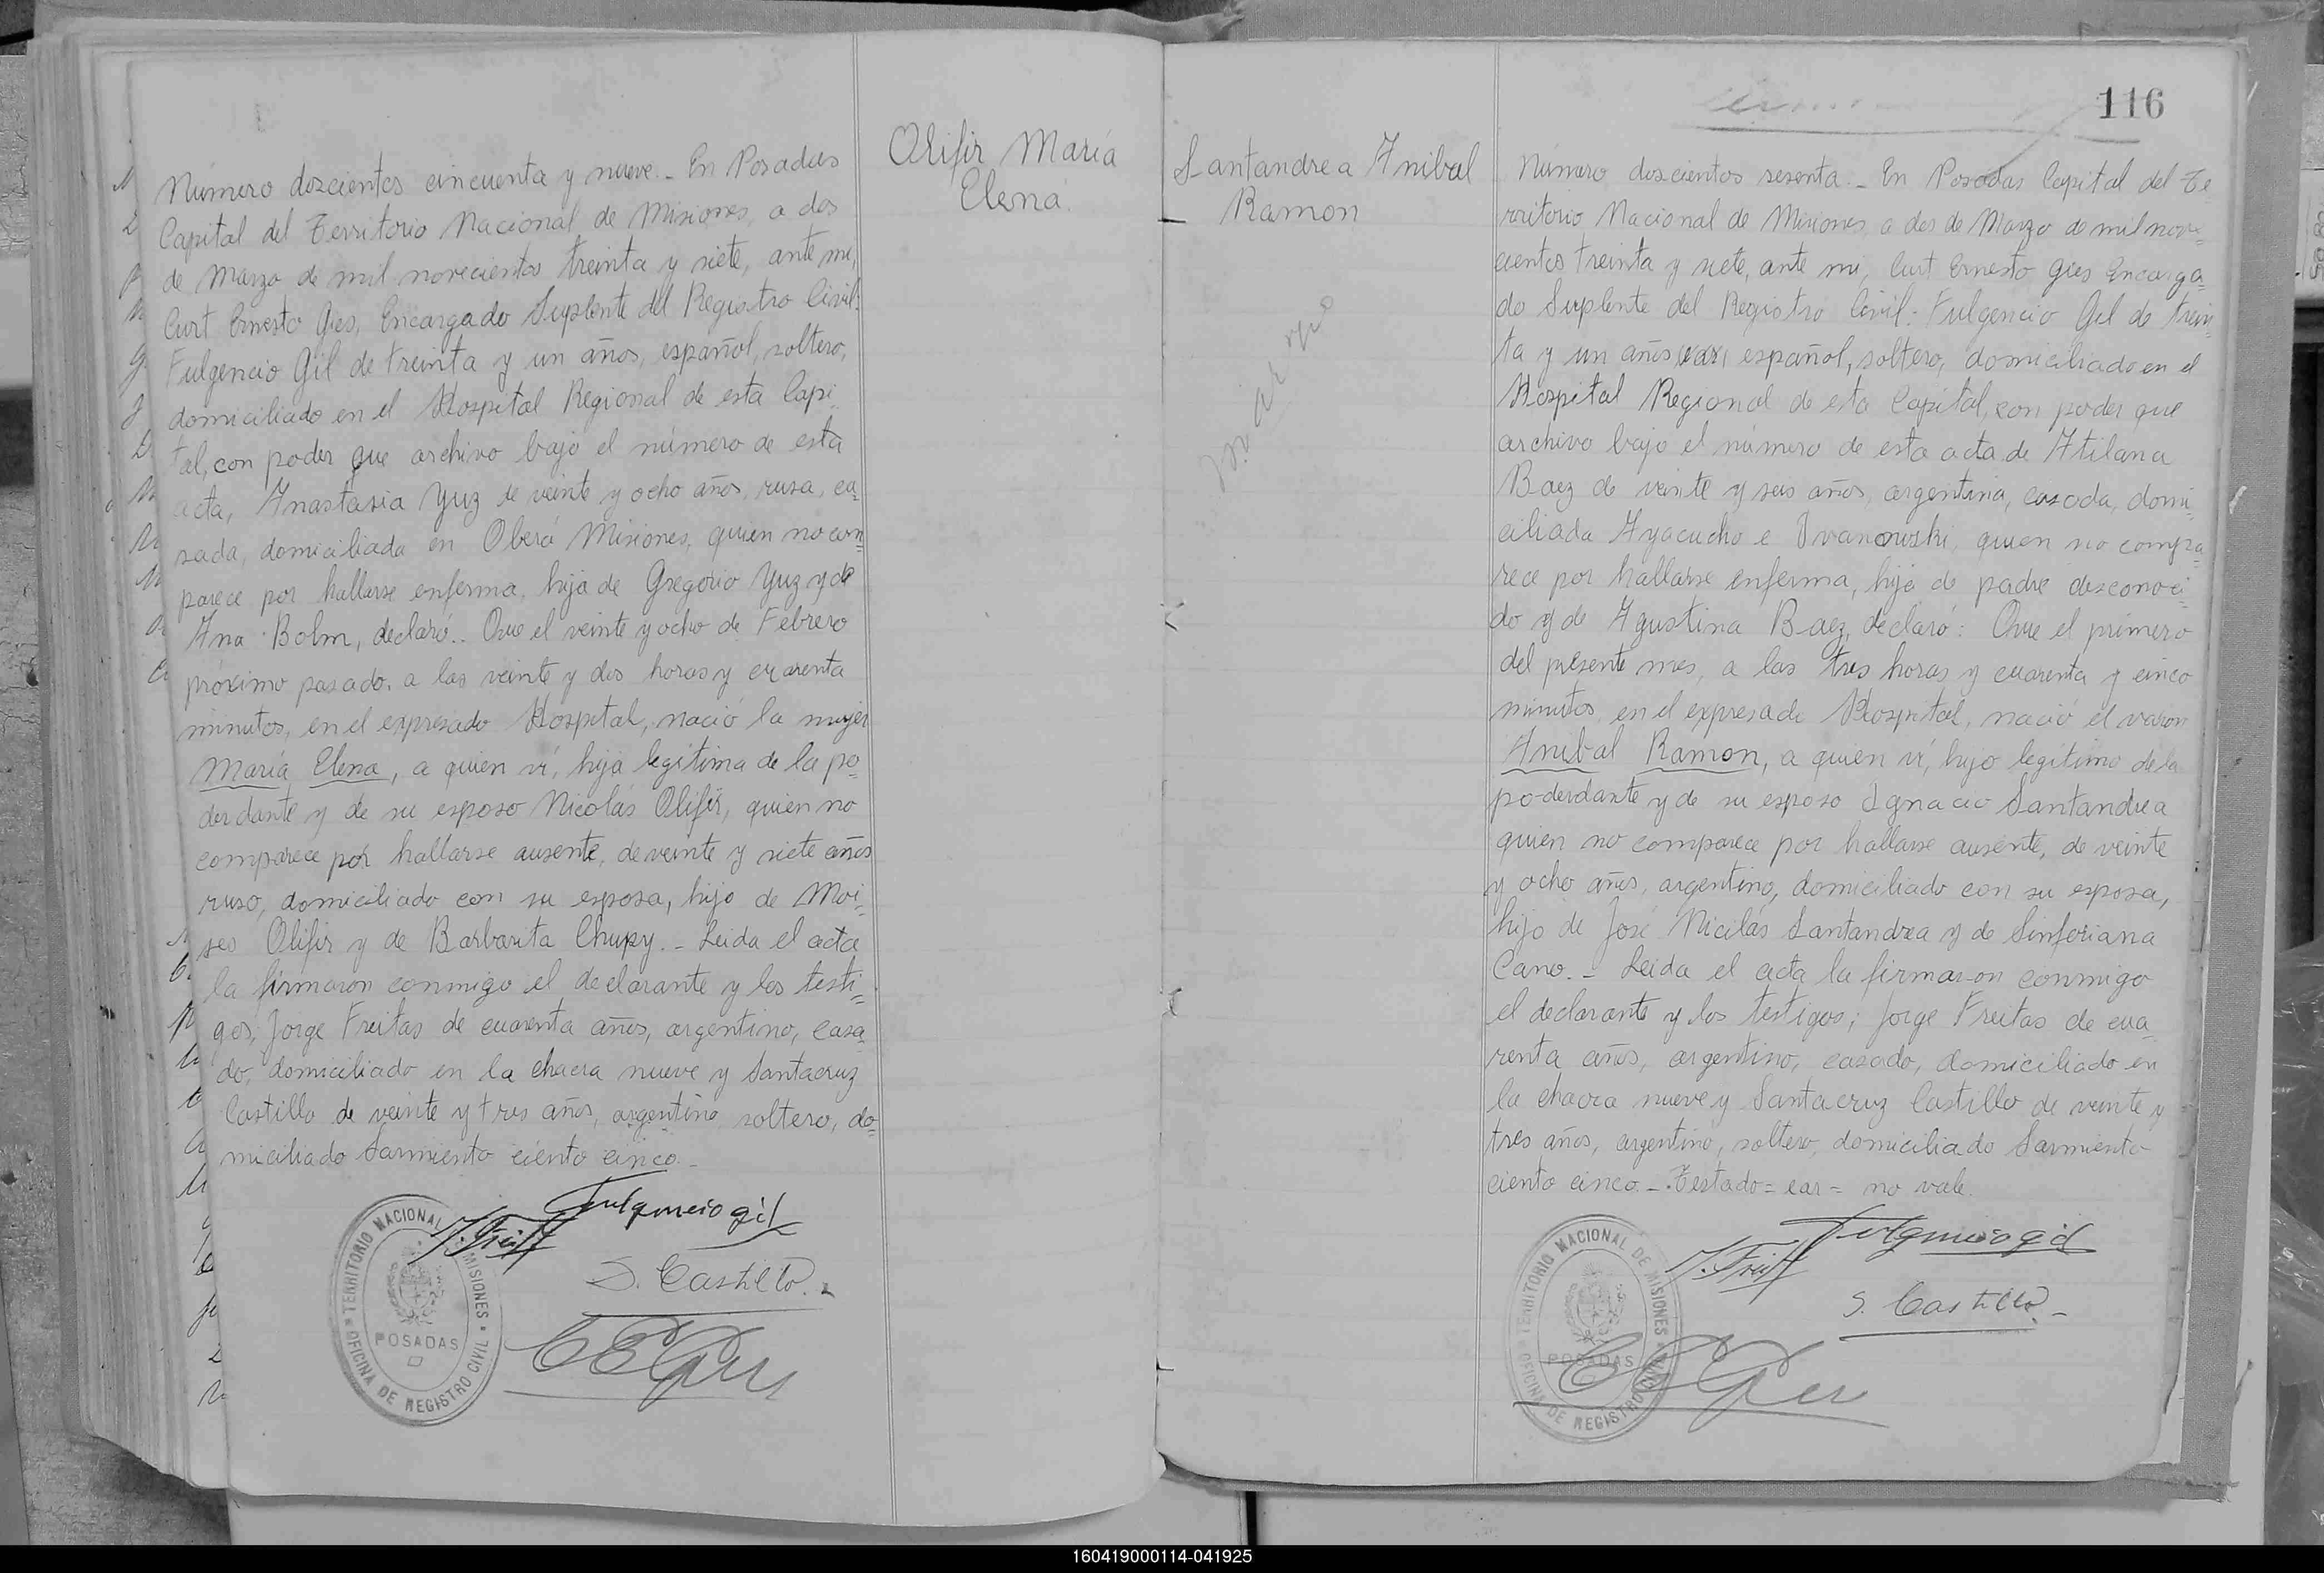 Número doscientos cincuenta y nueve.- En Posadas
Capital del Territorio Nacional de Misiones, a dos
de Marzo de mil novecientos treinta y siete, ante mi,
Curt Ernesto Gies, Encargado Suplente del Registro Civil:
Fulgencio Gil de treinta y un años, español, soltero,
domiciliado en el Hospital Regional de esta Capi-
tal, con poder que archivo bajo el número de esta
acta, Anastasia Yuz de veinte y ocho años, rusa, ca=
sada, domiciliada en Oberá Misiones, quien no com=
parece por hallarse enferma, hija de Gregorio Yuz y de
Ana Bolm, declaró.. Que el veinte y ocho de Febrero
próximo pasado, a las veinte y dos horas y cuarenta
minutos, en el expresado Hospital, nació la mujer
María Elena, a quien ví, hija legítima de la po=
derdante y de su esposo Nicolás Olifir, quien no
comparece por hallarse ausente, de veinte y siete años
ruso, domiciliado con su esposa, hijo de Moi=
ses Olifir y de Barbarita Chupy.- Leida el acta
la firmaron conmigo el declarante y los testi=
gos, Jorge Freitas de cuarenta años, argentino, casa=
do, domiciliado en la chacra nueve y Santacruz
Castillo de veinte y tres años, argentino soltero, do=
miciliado Sarmiento ciento cinco.-
Fulgencio gil
J. Freit
S. Castillo.-
TERRITORIO NACIONAL DE MISIONES
POSADAS
OFICINA DE REGISTRO CIVIL
Olifir María
Elena.
Santandrea Anibal
Ramon
116
Número doscientos sesenta.- En Posadas Capital del Te=
rritorio Nacional de Misiones, a dos de Marzo de mil nove=
cientos treinta y siete, ante mi, Curt Ernesto Gies Encarga=
do Suplente del Registro Civil: Fulgencio Gil de trein=
ta y un años, (car) español, soltero, domiciliado en el
Hospital Regional de esta Capital, con poder que
archivo bajo el número de esta acta, de Atilana
Baez de veinte y seis años, argentina, casada, domi=
ciliada Ayacucho e Ivanowski, quien no compa=
rece por hallarse enferma, hija de padre desconoci=
do y de Agustina Baez, declaró: Que el primero
del presente mes, a las tres horas y cuarenta y cinco
minutos, en el expresado Hospital, nació el varon
Anibal Ramon, a quien ví, hijo legítimo de la
poderdante y de su esposo Ignacio Santandrea
quien no comparece por hallarse ausente, de veinte
y ocho años, argentino, domiciliado con su esposa,
hijo de José Nicilás Santandrea y de Sinforiana
Cano.- Leida el acta la firmaron conmigo
el declarante y los testigos; Jorge Freitas de cua=
renta años, argentino, casado, domiciliado en
la chacra nueve y Santacruz Castillo de veinte y
tres años, argentino, soltero, domiciliado Sarmiento
ciento cinco.-.Testado= car= no vale.
Fulgencio gil
J. Freit
S. Castillo.-
TERRITORIO NACIONAL DE MISIONES
POSADAS
OFICINA DE REGISTRO CIVIL
160419000114-041925